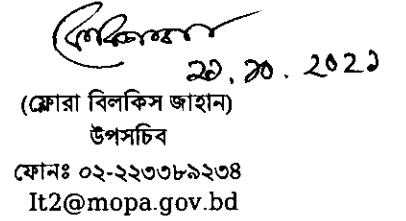 ২১.১০.২০২১
(ফ্লোরা বিলকিস জাহান)
উপসচিব
ফোনঃ ০২-২২৩৩৮৯২৩৪
It2@mopa.gov.bd